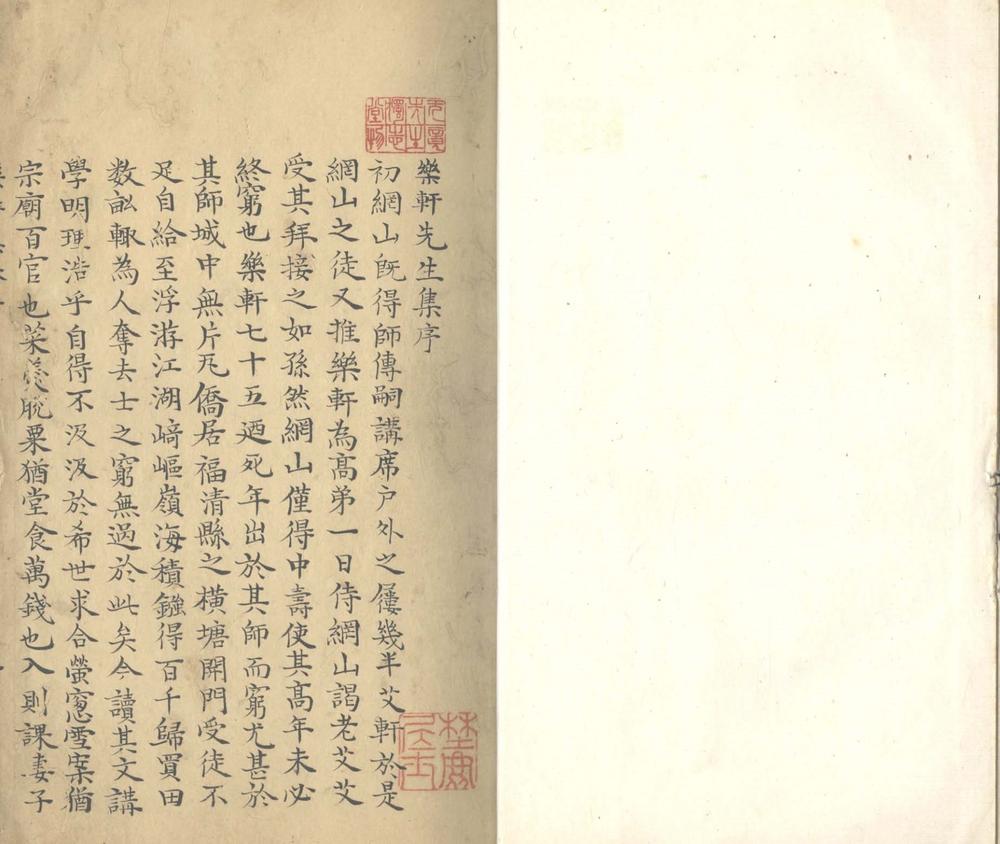 樂軒先生集序
初網山旣得師傳嗣講席戶外之屨幾半艾軒於是
網山之徒又推樂軒為髙弟一日侍網山謁老艾艾
受其拜接之如孫然網山僅得中壽使其髙年未必
終窮也樂軒七十五廼死年出於其師而窮尤甚於
其師城中無片瓦僑居福清縣之橫塘開門受徒不
足自給至浮游江湖﨑嶇嶺海積鏹得百千歸買田
数畝輙為人奪去士之窮無過於此矣今讀其文講
學明理浩乎自得不汲汲於希世求合螢窻雪案猶
宗廟百官也菜羮脫粟猶堂食萬錢也入則課妻子